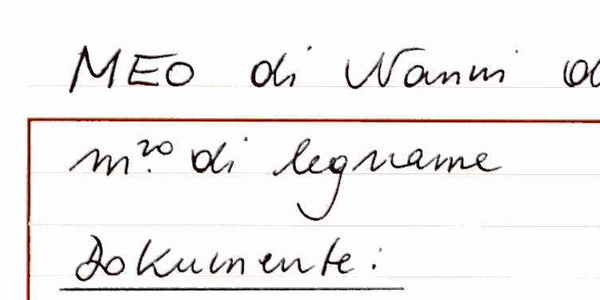 MEO di Nanni
m.ro di legname
Dokumente: